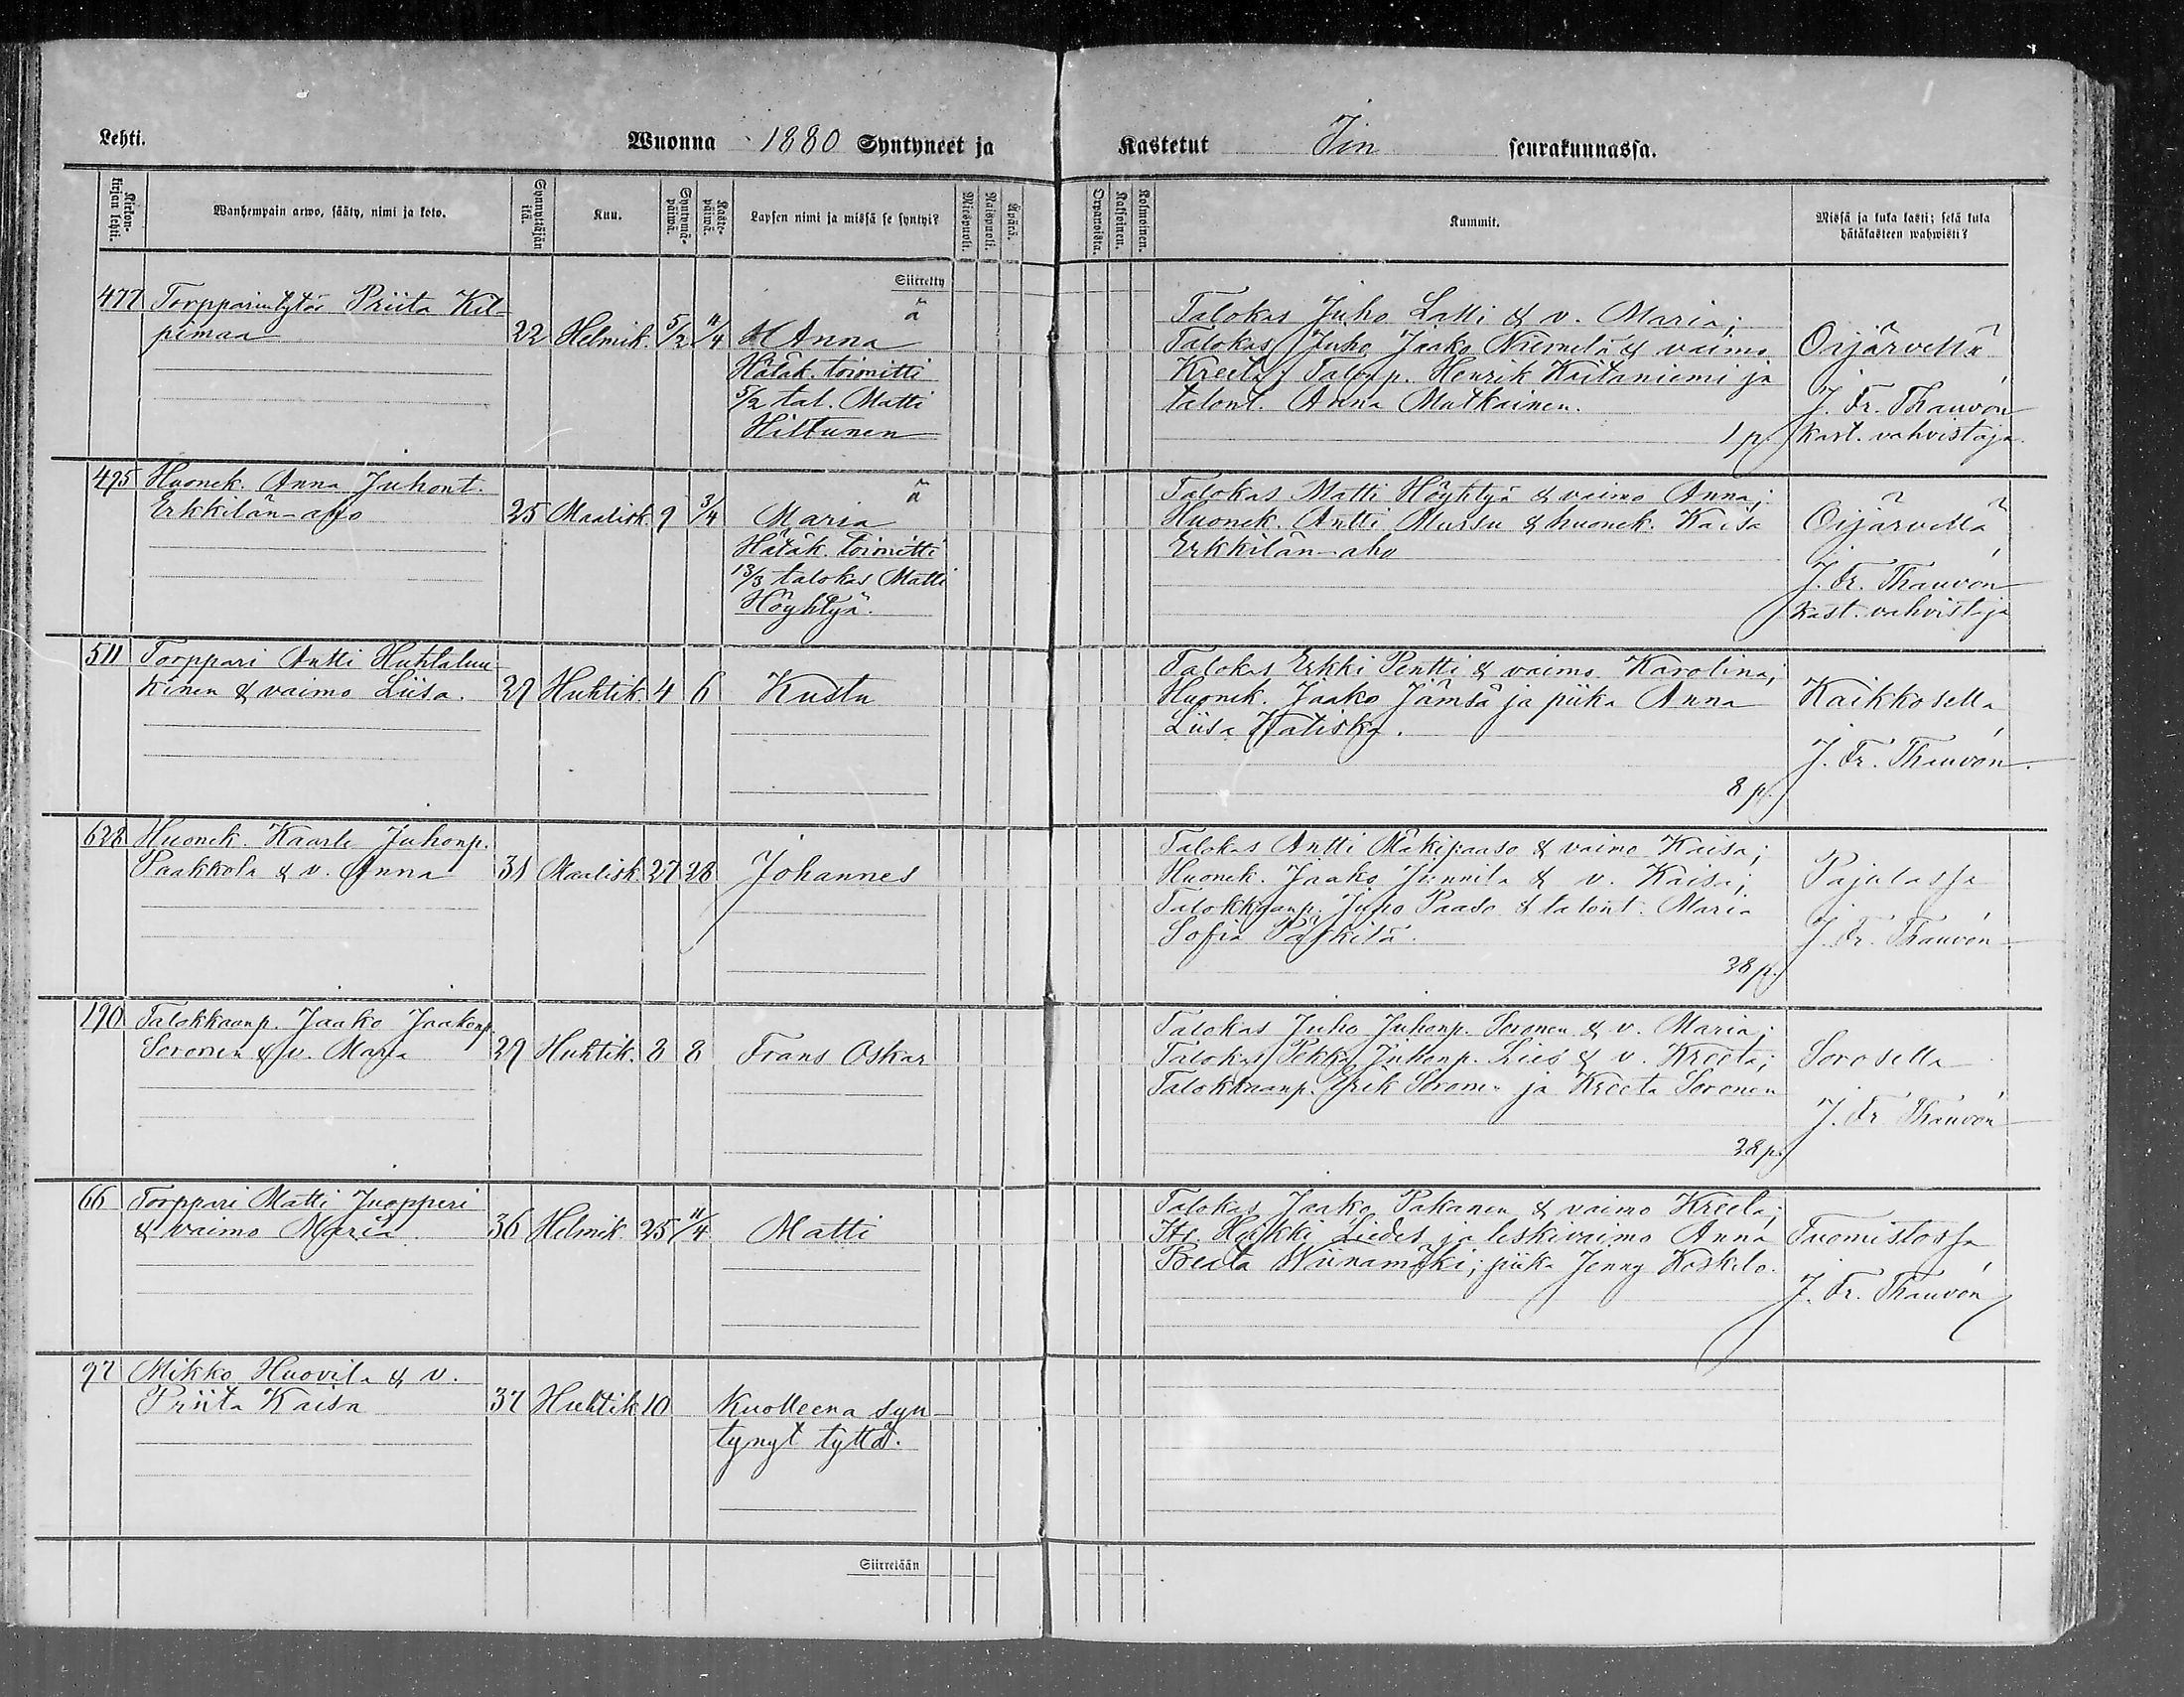 Lehti.
Wuonna 1880 Syntyneet ja
Kastetut Iin seurakunnassa.
Kirkon-
kirjan lehti.
Wanhempain arwo, sääty, nimi ja koto.
Synnyttäjän
ikä.
Kuu.
Syntymä-
päiwä.
Kaste-
päiwä.
Lapsen nimi ja missä se syntyi?
Miespuoli.
Naispuoli.
Äpärä.
Orpanoista.
Kaksoinen.
Kolmoinen.
Kummit.
Missä ja kuka kasti; sekä kuka
hätäkasteen wahwisti?
Siirretty
477 Torpparintytär Priita Kil-
pimaa 22 Helmik. 5/2 11/4 Anna ä
Hätäk. toimitti
5/2 tal. Matti
Hiltunen
Talokas Juho Latti & v. Maria;
Talokas Juho Jaako Niemelä & vaimo
Kreeta; Talonp. Henrik Kaitaniemi ja
talont. Anna Matkainen.
1 p.
Oijärvellä
J. Fr. Thauvon
kast. vahvistaja.
495 Huonek. Anna Juhont.
Erkkilän-aho 25 Maalisk. 9 3/4 Maria ä
Hätäk. toimitti
13/3 talokas Matti
Höyhtyä.
Talokas Matti Höyhtyä & vaimo Anna;
Huonek. Antti Mursu & huonek. Kaisa
Erkkilän-aho
Oijärvellä
J. Fr. Thauvon
kast. vahvistaja
511 Torppari Antti Huhtaluu-
kinen & vaimo Liisa. 29 Huhtik. 4 6 Kustu
Talokas Erkki Pentti & vaimo Karolina;
Huonek. Jaako Jämsä ja piika Anna
Liisa Hätiska.
8 p.
Kaikkosella
J. Fr. Thauvon.
628 Huonek. Kaarle Juhonp.
Paakkola & v. Anna 31 Maalisk. 27 28 Johannes
Talokas Antti Mäkipaaso & vaimo Kaisa;
Huonek. Jaako Junnila & v. Kaisa;
Talokkaanp. Juho Paaso & talont. Maria
Sofia Päkkilä.
38 p.
Pajulassa
J. Fr. Thauvon
190 Talokkaanp. Jaako Jaakonp.
Soronen & v. Maria 29 Huhtik. 8 8 Frans Oskar
Talokas Juho Juhonp. Soronen & v. Maria;
Talokas Pekka Juhonp. Lies & v. Kreeta;
Talokkaanp. Erik Soronen ja Kreeta Soronen
38 p.
Sorosella
J. Fr. Thauvon
66 Torppari Matti Juopperi
& vaimo Maria 36 Helmik. 25 11/4 Matti
Talokas Jaako Pakanen & vaimo Kreeta;
Its. Heikki Liedes ja leskivaimo Anna
Preeta Wiinamäki; piika Jenny Koskelo.
Tuomistossa
J. Fr. Thauvon
97 Mikko Huovila & v.
Priita Kaisa 37 Huhtik 10 Kuolleena syn-
tynyt tyttö.
Siirretään